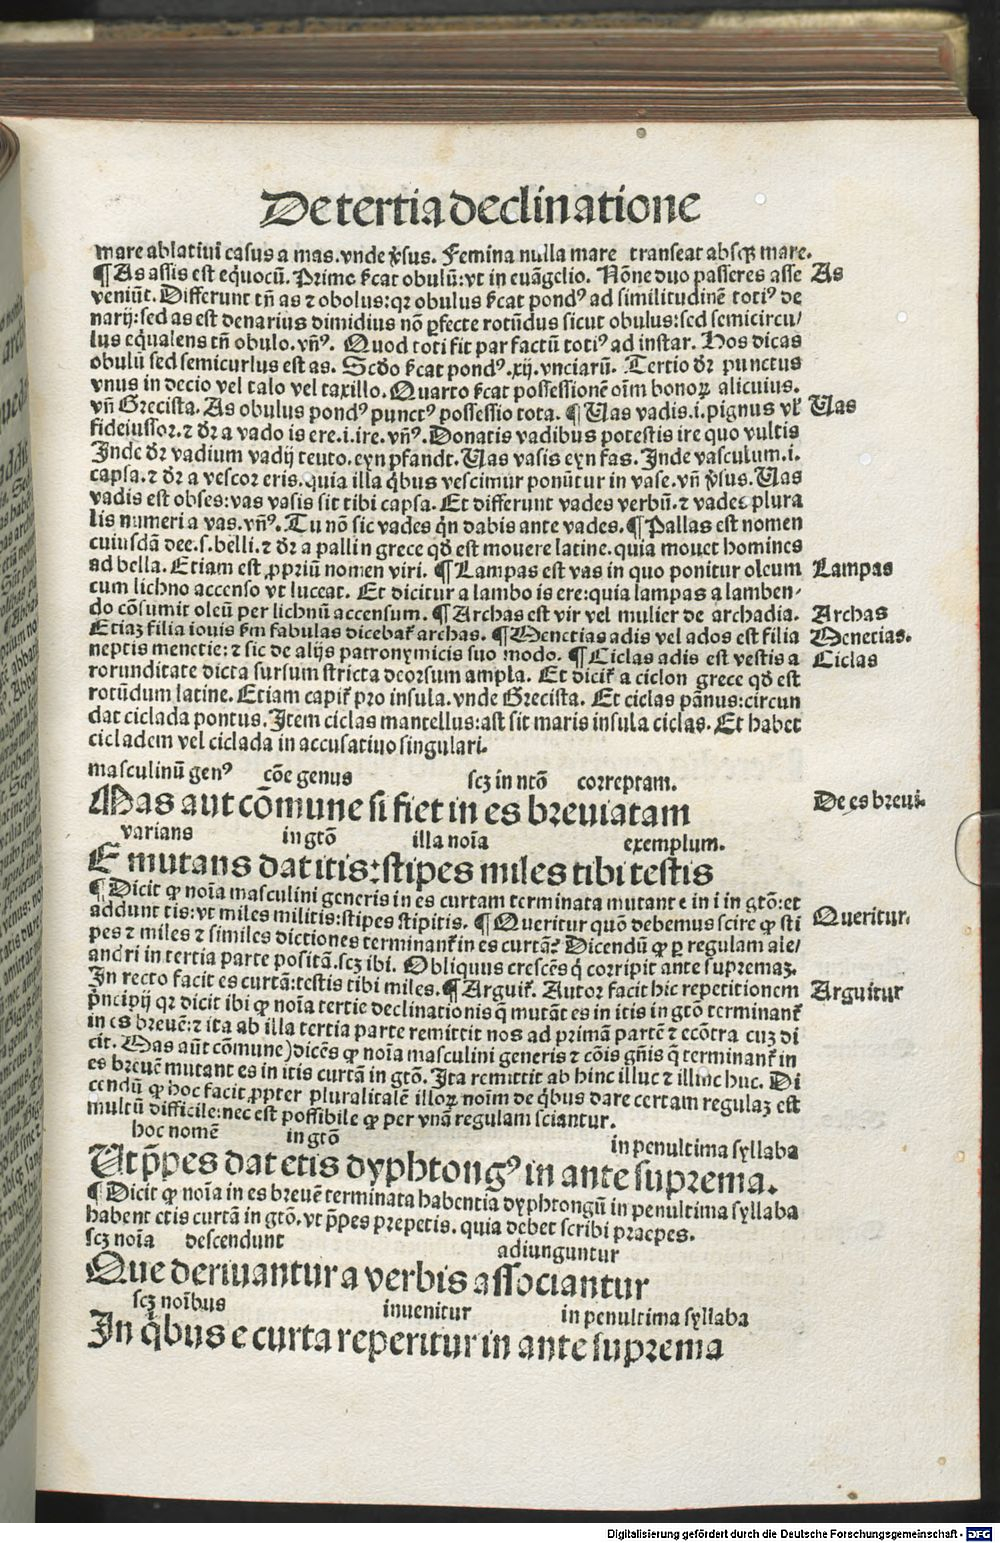 De tertia declinatione
mare ablatiui casus a mas. vnde v̉sus. Femina nulla mare transeat absqꝫ mare.
¶ As assis est equocū. Primo s̄cat obulū: vt in euāgelio. Nōne duo passeres asse
As
veniūt. Differunt tn̄ as ⁊ obolus: qꝛ obulus s̄cat pondꝰ ad similitudinē totiꝰ de
narij: sed as est denarius dimidius nō ꝑfecte rotūdus sicut obulus: sed semicircu/
lus equalens tn̄ obulo. vn̄ꝰ. Quod toti fit par factū totiꝰ ad instar. Hos dicas
obulū sed semicurlus est as. Scd̓o s̄cat pondꝰ .xij. vnciarū. Tertio dr̄ punctus
vnus in decio vel talo vel taxillo. Quarto s̄cat possessionē oīm bonoꝝ alicuius.
vn̄ Grecista. As obulus pondꝰ punctꝰ possessio tota. ¶ Uas vadis .i. pignus vl̓
Uas
fideiussor. ⁊ dr̄ a vado is ere .i. ire. vn̄ꝰ. Donatis vadibus potestis ire quo vultis
Inde dr̄ vadium vadij teuto. eyn pfandt. Uas vasis eyn fas. Inde vasculum .i.
capsa. ⁊ dr̄ a vescor eris. quia illa q̇bus vescimur ponūtur in vase. vn̄ v̉sus. Uas
vadis est obses: vas vasis sit tibi capsa. Et differunt vades verbū. ⁊ vades plura
lis numeri a vas. vn̄ꝰ. Tu nō sic vades qn̄ dabis ante vades. ¶ Pallas est nomen
cuiusdā dee .s. belli. ⁊ dr̄ a pallin grece qd̓ est mouere latine. quia mouet homines
ad bella. Etiam est ꝓpriū nomen viri. ¶ Lampas est vas in quo ponitur oleum
Lampas
cum lichno accenso vt luceat. Et dicitur a lambo is ere: quia lampas a lamben-
do cōsumit oleū per lichnū accensum. ¶ Archas est vir vel mulier de archadia.
Archas
Etiaꝫ filia iouis sm̄ fabulas dicebat̉ archas. ¶ Menetias adis vel ados est filia
Menetias.
neptis menetie: ⁊ sic de alijs patronymicis suo modo. ¶ Ciclas adis est vestis a
Ciclas
rorunditate dicta sursum stricta deorsum ampla. Et dicit̉ a ciclon grece qd̓ est
rotūdum latine. Etiam capit̉ pro insula. vnde Grecista. Et ciclas pānus: circun
dat ciclada pontus. Item ciclas mantellus: ast sit maris insula ciclas. Et habet
cicladem vel ciclada in accusatiuo singulari.
masculinū genꝰ cōe genus scꝫ in ntō correptam.
Mas aut cōmune si fiet in es breuiatam
De es breui.
varians in gtō illa noīa exemplum.
E mutans dat itis: stipes miles tibi testis
¶ Dicit ꝙ noīa masculini generis in es curtam terminata mutant e in i in gtō: et
addunt tis: vt miles militis: stipes stipitis. ¶ Queritur quō debemus scire ꝙ sti
Queritur.
pes ⁊ miles ⁊ similes dictiones terminant̉ in es curtā? Dicendū ꝙ ꝑ regulam ale/
andri in tertia parte positā. scꝫ ibi. Obliquus crescēs q̇ corripit ante supremaꝫ.
In recto facit es curtā: testis tibi miles. ¶ Arguit̉. Autor facit hic repetitionem
Arguitur
pͥncipij qꝛ dicit ibi ꝙ noīa tertie declinationis q̄ mutāt es in itis in gtō terminant̉
in es breuē: ⁊ ita ab illa tertia parte remittit nos ad primā partē ⁊ ecōtra cuꝫ di
cit. Mas aūt cōmune) dicēs ꝙ noīa masculini generis ⁊ cōis gn̄is q̄ terminant̉ in
es breuē mutant es in itis curtā in gtō. Ita remittit ab hinc illuc ⁊ illinc huc. Di
cendū ꝙ hoc facit ꝓpter pluralitalē illoꝝ noīm de q̇bus dare certam regulaꝫ est
multū difficile: nec est possibile ꝙ per vnā regulam sciantur.
hoc nomē in gtō in penultima syllaba
Ut p̄pes dat etis dyphtongꝰ in ante suprema.
¶ Dicit ꝙ noīa in es breuē terminata habentia dyphtongū in penultima syllaba
habent etis curtā in gtō. vt p̄pes prepetis. quia debet scribi praepes.
scꝫ noīa descendunt adiunguntur
Que deriuantur a verbis associantur
scꝫ noībus inuenitur in penultima syllaba
In q̇bus e curta reperitur in ante suprema
Digitalisierung gefördert durch die Deutsche Forschungsgemeinschaft - DFG